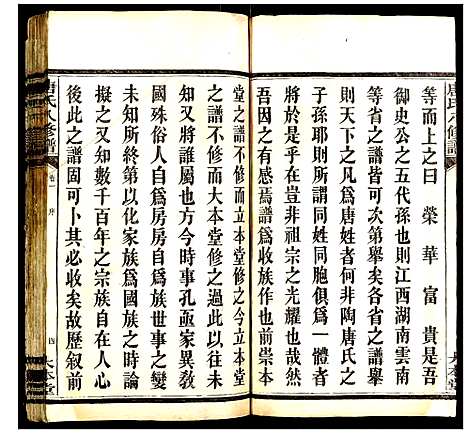 等而上之曰榮華富貴是吾
御史公之五代孫也則江西湖南雲南
等省之譜皆可次第舉矣各省之譜舉
則天下之凡爲唐姓者何非陶唐氏之
子孫耶則所謂同姓同胞俱爲一體者
將於是乎在豈非祖宗之光耀也哉
吾因之有感焉譜爲收族作也前崇本
堂之譜不修而立本堂修之立本堂
之譜不修而大本堂修之過此以往
又知將誰屬也方今時事孔亟家異教
國殊俗人自爲房房自爲族世事之變
未知所終第以化家族爲國族之時論
擬之又知數千百年之宗族是大自在人
後此之譜固可卜其必收矣故歷叙前
唐氏八修譜
卷一
序
四
大本堂